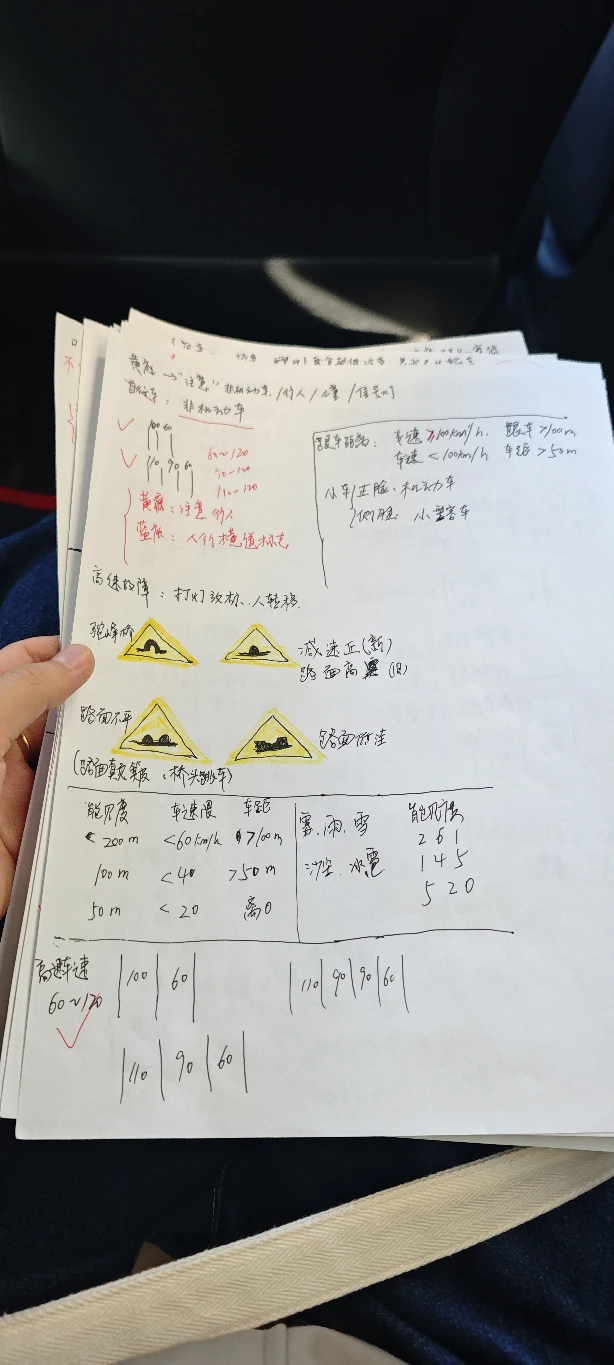 黄底→"注意"非机动车/行人/儿童/信号灯
自行车：非机动车
100 60
110 90 60
60~120
90~120
110~120
黄底：注意行人
蓝底：人行横道标志
跟车距离：车速≥100km/h. 跟车>100m
车速<100km/h 车距>50m
小车 正脸、机动车
侧脸 小型客车
高速故障：打灯放标、人转移
驼峰桥
减速丘(新)
路面高突(旧)
路面不平
路面低洼
(路面颠簸、桥头跳车)
能见度 车速限 车距
<200m <60km/h >100m
100m <40 >50m
50m <20 离0
雾、雨、雪 能见度
261
沙尘、冰雹 145
520
高速车速
60~120
100 60
110 90 90 60
110 90 60